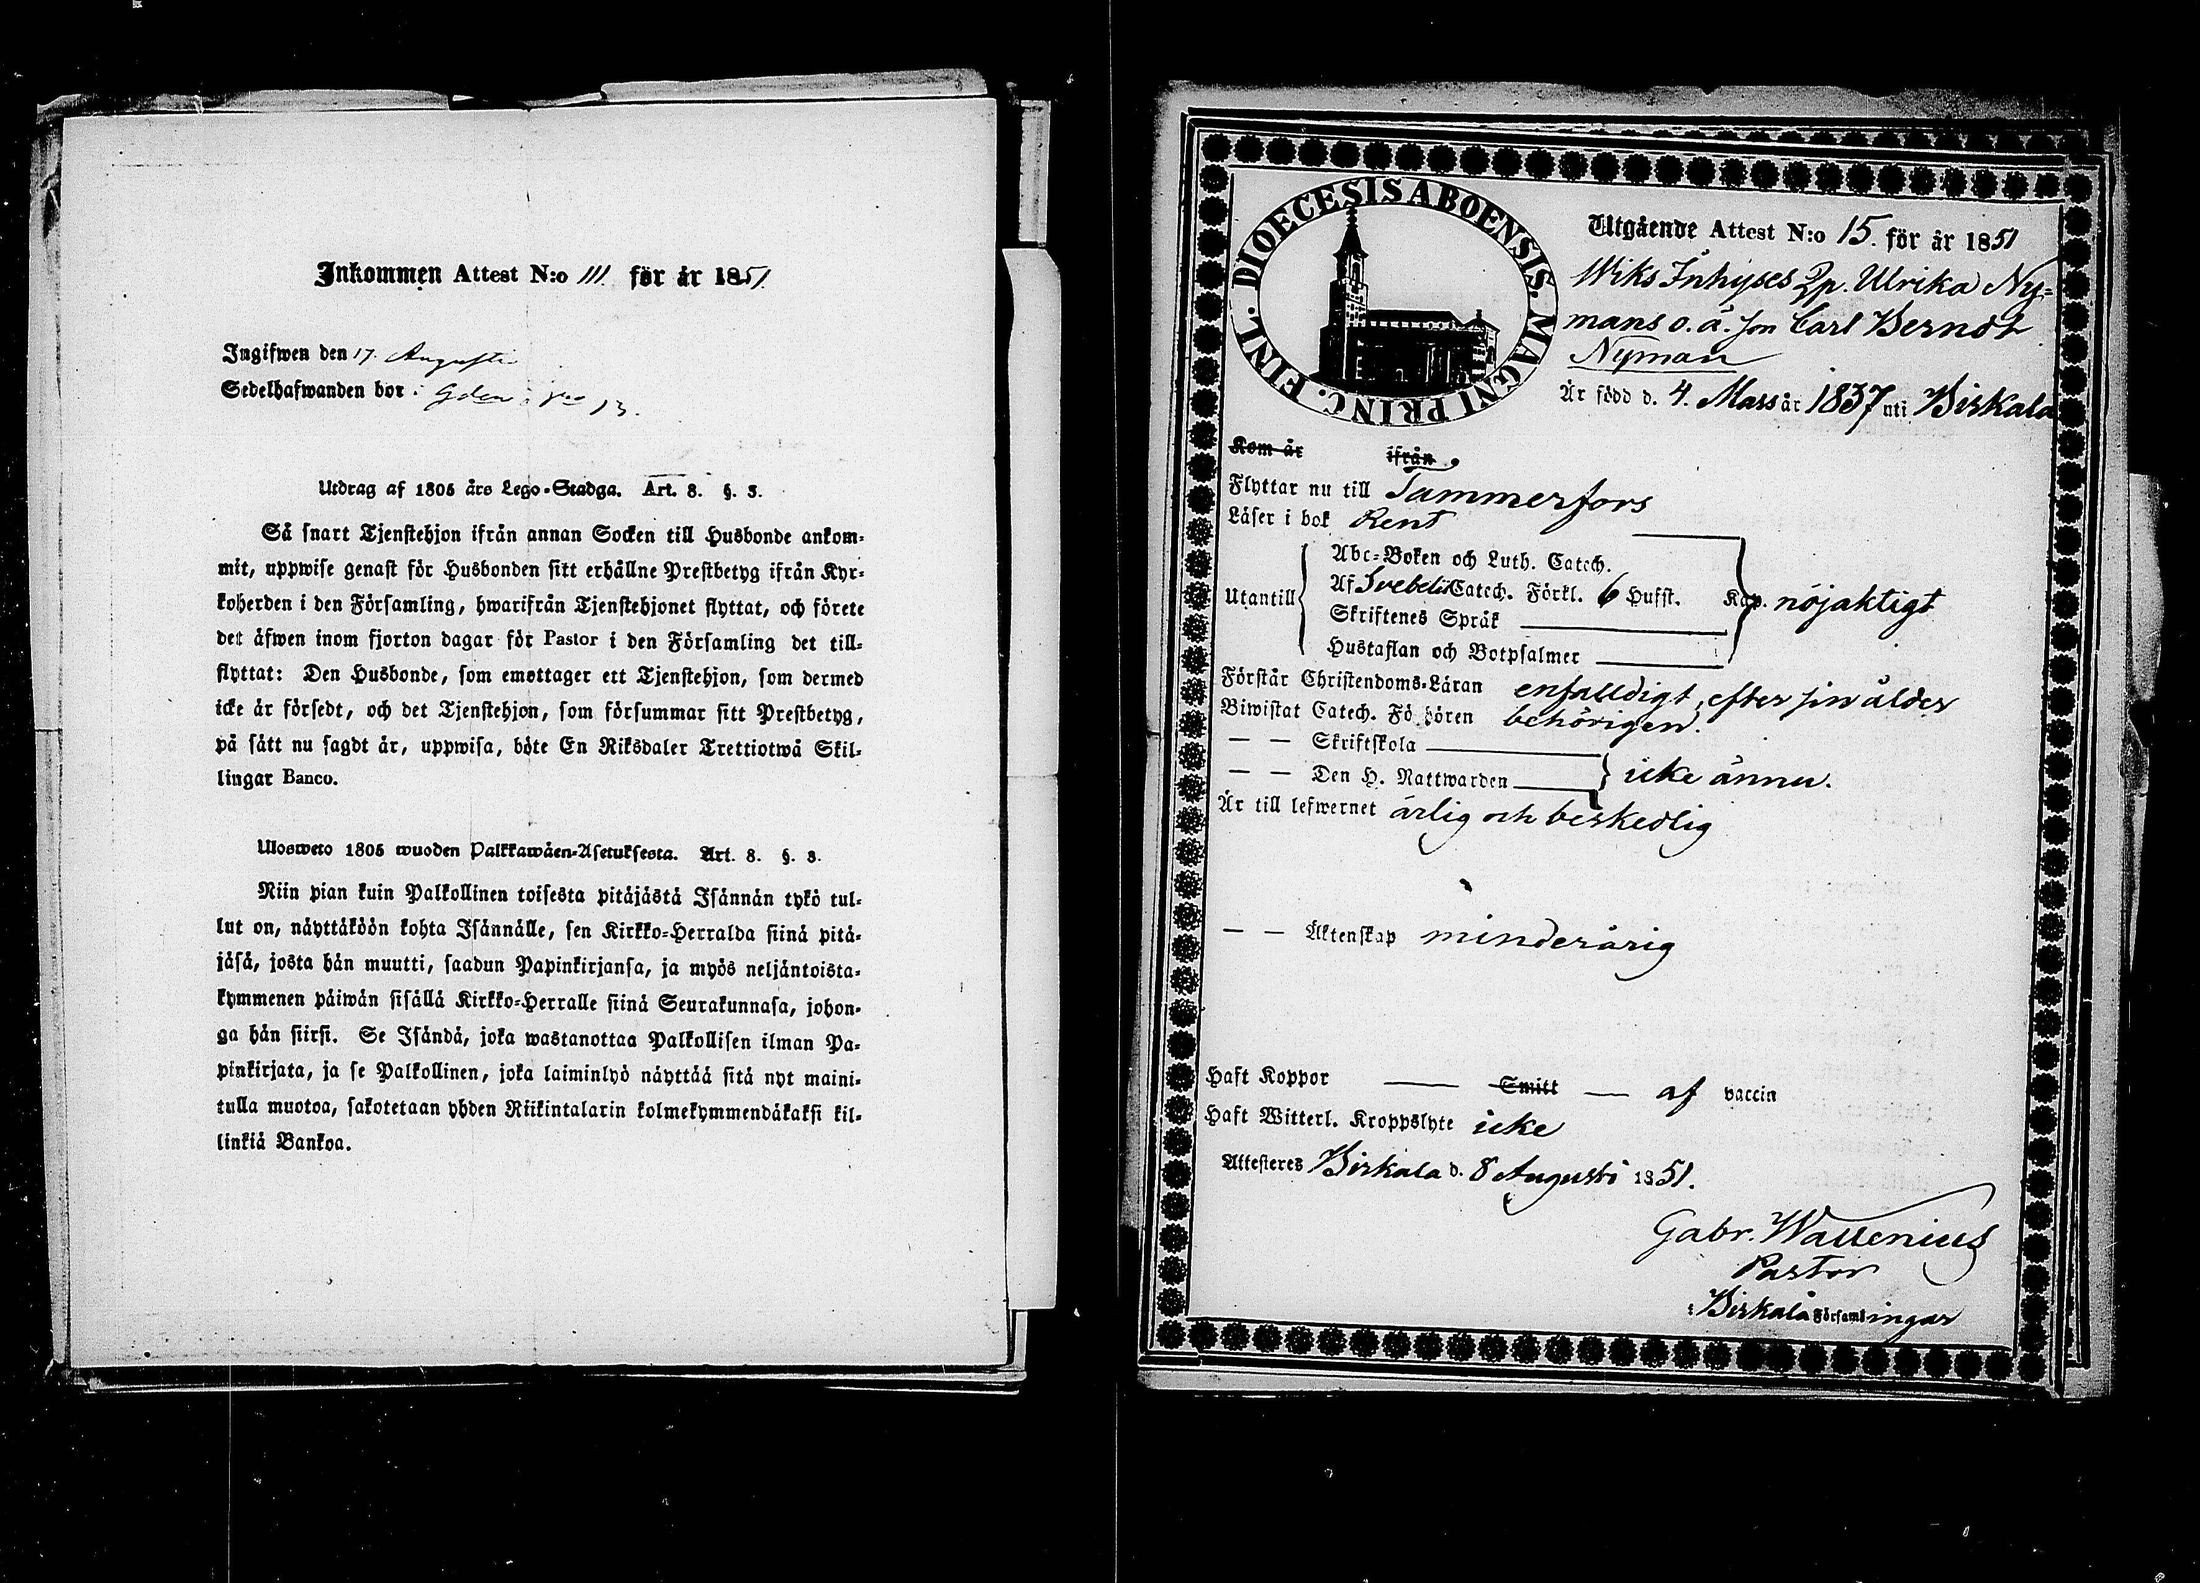 Inkommen Attest N:o 111. för år 1851.
Ingifwen den 17. Augusti
Sedelhafwanden bor i Gden 13.
Utdrag af 1805 års Lego-Stadga. Art. 8. §. 3.
Så snart Tjenstehjon ifrån annan Socken till Husbonde ankom-
mit, uppwise genast för Husbonden sitt erhållne Prestbetyg ifrån Kyr-
koherden i den Församling, hwarifrån Tjenstehjonet flyttat, och förete
det äfwen inom fjorton dagar för Pastor i den Församling det till-
flyttat: Den Husbonde, som emottager ett Tjenstehjon, som dermed
icke är försedt, och det Tjenstehjon, som försummar sitt Prestbetyg,
på sätt nu sagdt är, uppwisa, böte En Riksdaler Trettiotwå Skil-
lingar Banco.
Ulosweto 1805 wuoden Palkkawäen-Asetuksesta. Art. 8. §. 3.
Niin pian kuin Palkollinen toisesta pitäjästä Isännän tykö tul-
lut on, näyttäköön kohta Isännälle, sen Kirkko-Herralda siinä pitä-
jäsä, josta hän muutti, saadun Papinkirjansa, ja myös neljäntoista-
kymmenen päiwän sisällä Kirkko-Herralle siinä Seurakunnasa, johon-
ga hän siirsi. Se Isändä, joka wastanottaa Palkollisen ilman Pa-
pinkirjata, ja se Palkollinen, joka laiminlyö näyttää sitä nyt maini-
tulla muotoa, sakotetaan yhden Riikintalarin kolmekymmendäkaksi kil-
linkiä Bankoa.
DIOECESIS ABOENSIS. MAGNI PRINC. FINL.
Utgående Attest N:o 15. för år 1851
Wiks Inhyses Qp. Ulrika Ny-
mans o. ä. son Carl Berndt
Nyman
Är född d. 4. Mars år 1837 uti Birkala
Kom år ifrån
Flyttar nu till Tammerfors
Läser i bok Rent
Utantill
Abc-Boken och Luth. Catech.
Af Svebelii Catech. Förkl. 6 Hufst. Kap. nöjaktigt
Skriftenes Språk
Hustaflan och Botpsalmer
Förstår Christendoms-Läran enfalldigt, efter sin ålder
Biwistat Catech. Förhören behörigen.
— — Skriftskola
— — Den H. Nattwarden icke ännu.
Är till lefwernet ärlig och beskedlig
— — Äktenskap minderårig
Haft Koppor — Smitt — af vaccin
Haft Witterl. Kroppslyte icke
Attesteres Birkala d. 8 Augusti 1851.
Gabr. Wallenius
Pastor
i Birkala Församlingar